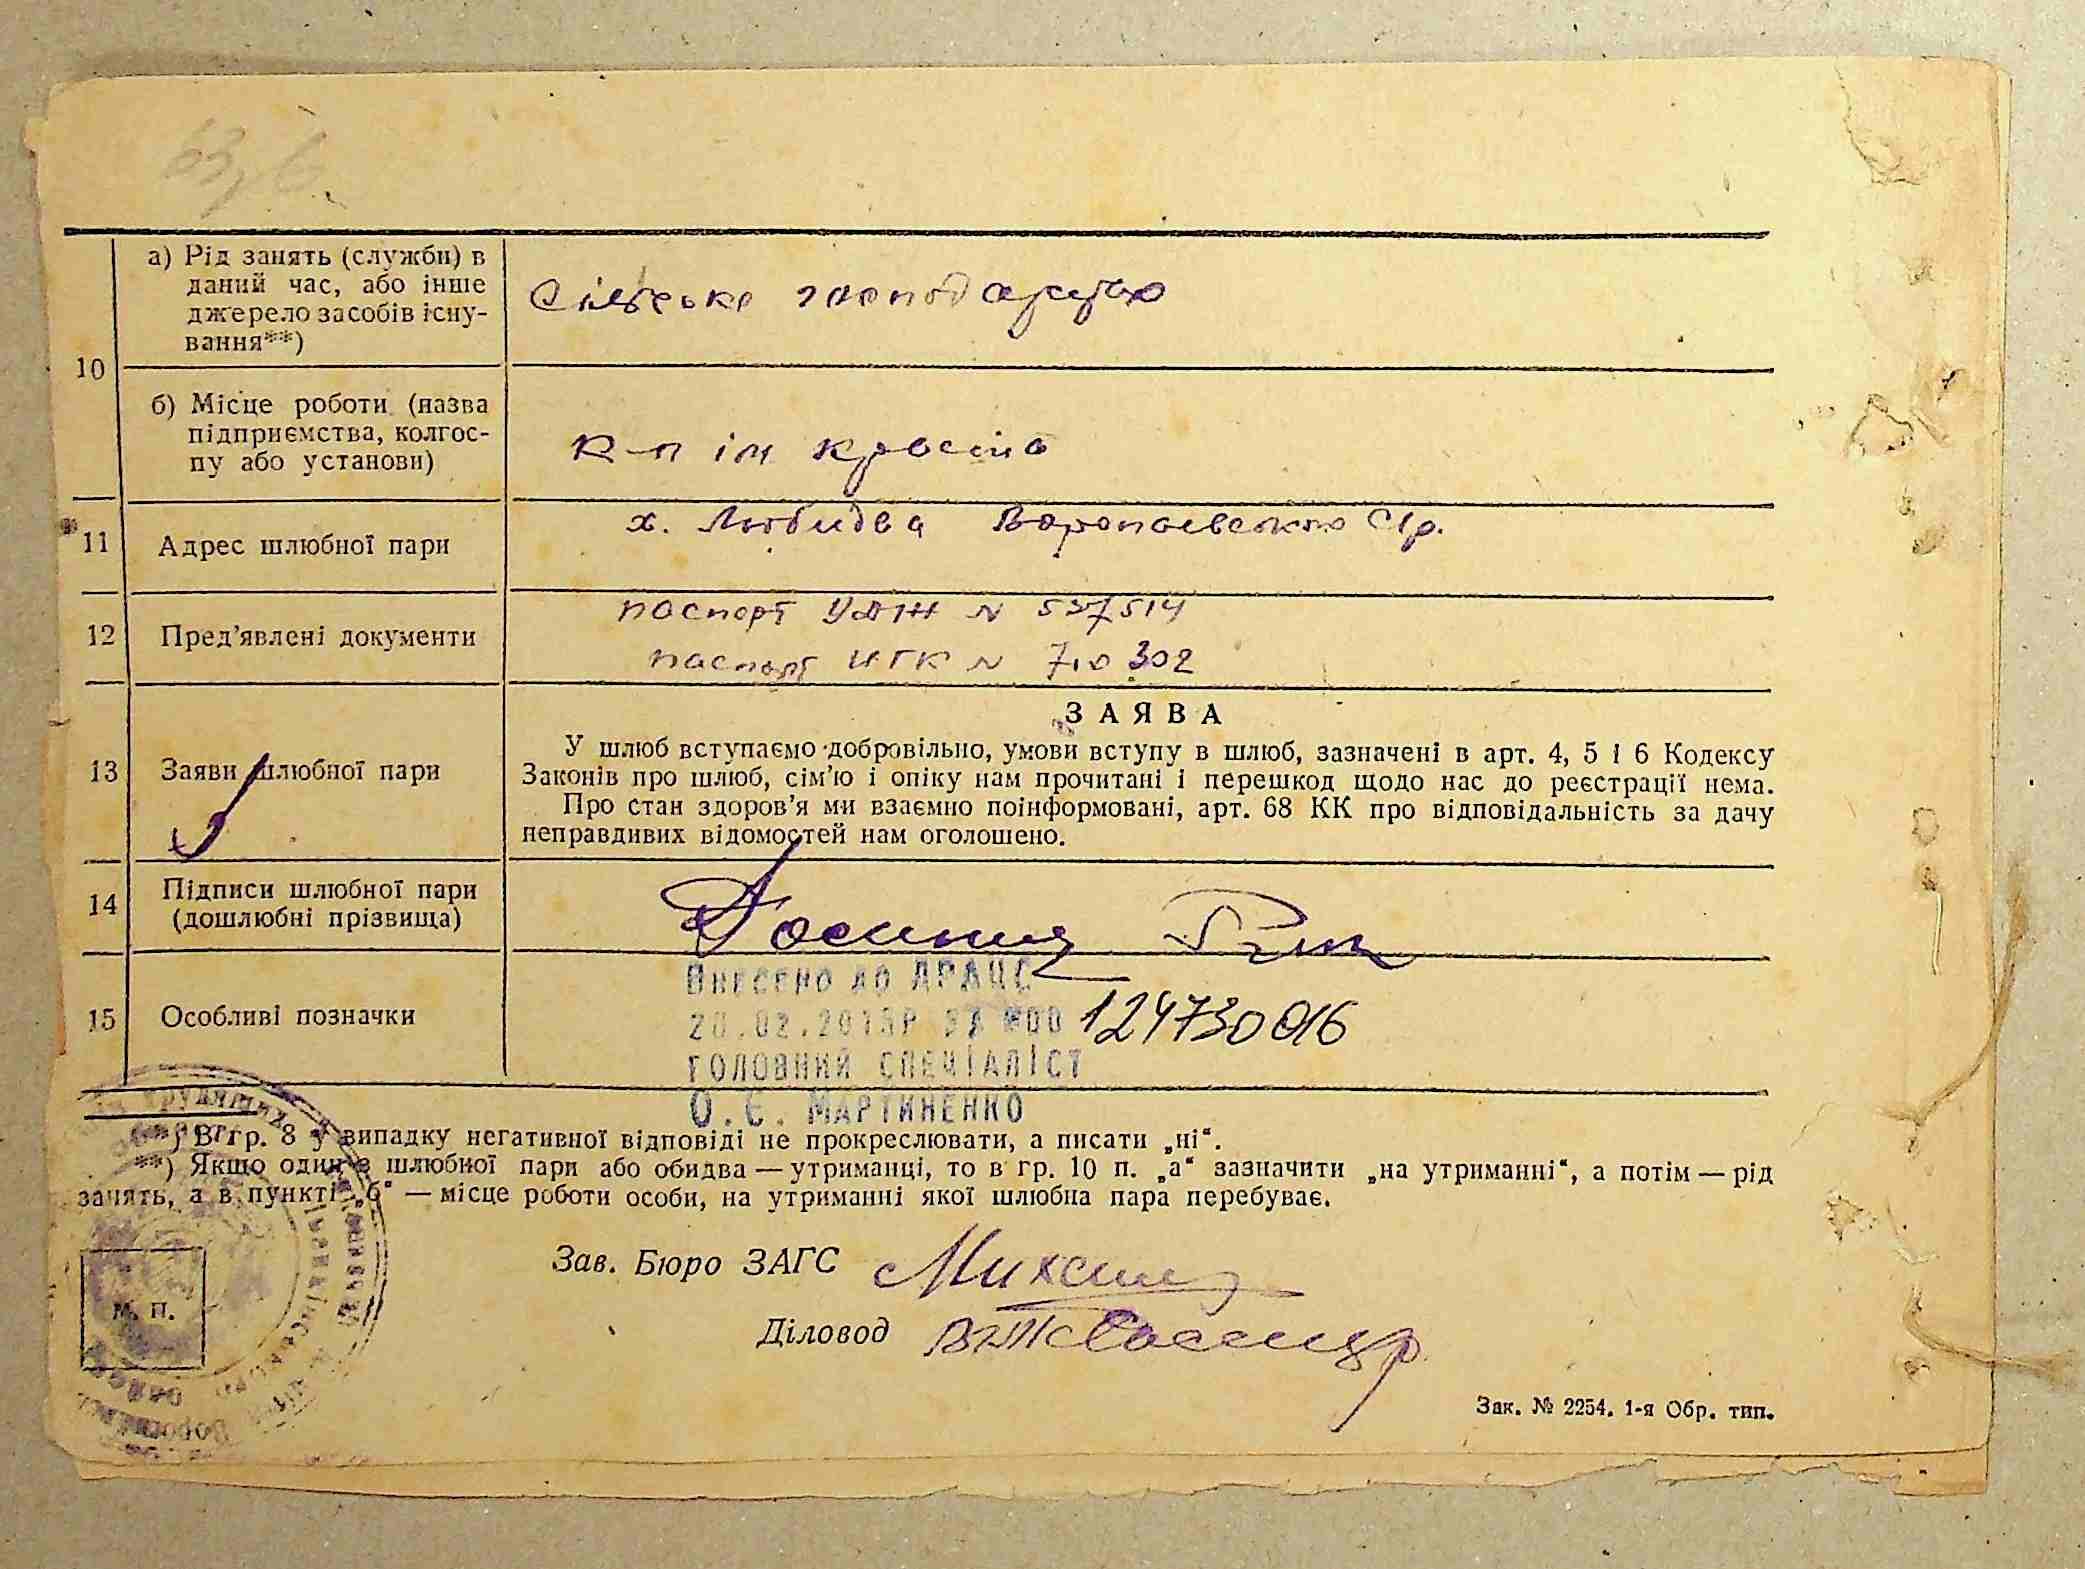 а) Рід занять (служби) в
даний час, або інше
джерело засобів існу-
вання**)
Сільське господарство
10
б) Місце роботи (назва
підприємства, колгос-
пу або установи)
к-п ім красіна
11
Адрес шлюбної пари
х. Любидва Воропаевського Ср.
12
Пред’явлені документи
паспорт № 537514
паспорт ИГК № 710302
ЗАЯВА
13
Заяви шлюбної пари
У шлюб вступаємо добровільно, умови вступу в шлюб, зазначені в арт. 4, 5 і 6 Кодексу
Законів про шлюб, сім’ю і опіку нам прочитані і перешкод щодо нас до реєстрації нема.
Про стан здоров’я ми взаємно поінформовані, арт. 68 КК про відповідальність за дачу
неправдивих відомостей нам оголошено.
14
Підписи шлюбної пари
(дошлюбні прізвища)
15
Особливі позначки
Внесено до ДРАЦС
124730016
головний спеціаліст
О.Є. Мартиненко
*) В гр. 8 у випадку негативної відповіді не прокреслювати, а писати „ні“.
**) Якщо один з шлюбної пари або обидва — утриманці, то в гр. 10 п. „а“ зазначити „на утриманні“, а потім — рід
занять, а в пункті „б“ — місце роботи особи, на утриманні якої шлюбна пара перебуває.
Зав. Бюро ЗАГС
М. П.
Діловод
Зак. № 2254. 1-я Обр. тип.